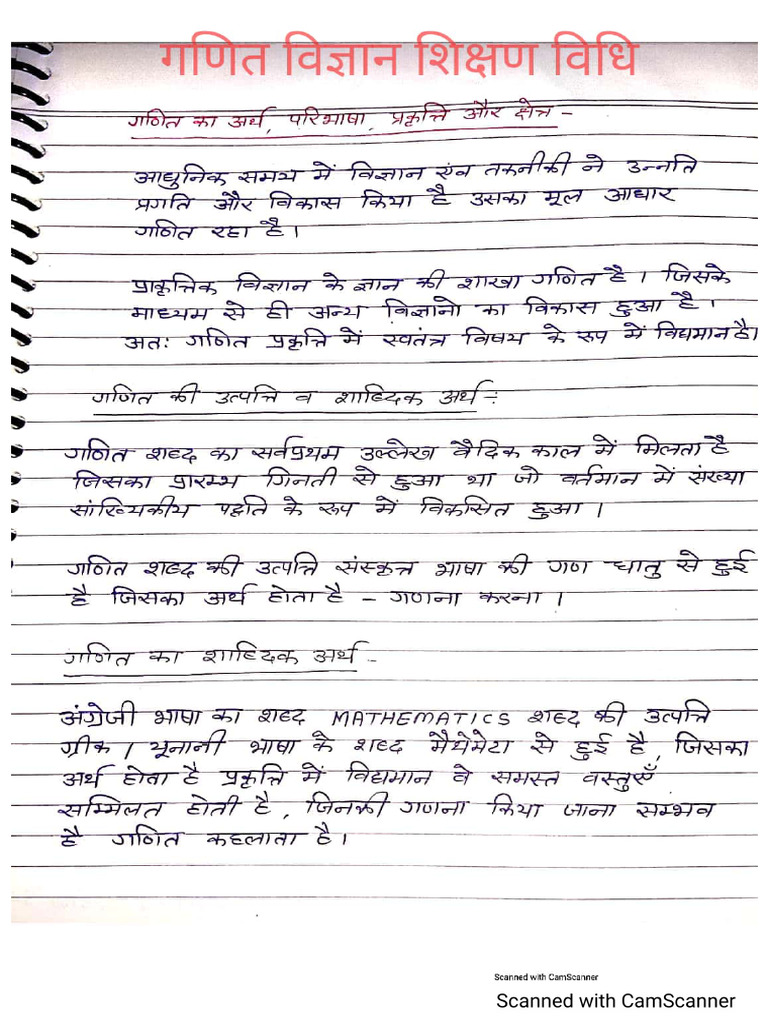 गणित विज्ञान शिक्षण विधि
गणित का अर्थ, परिभाषा, प्रकृत्ति और क्षेत्र -
आधुनिक समय में विज्ञान एंव तकनीकी ने उन्नति
प्रगति और विकास किया है उसका मूल आधार
गणित रहा है।
प्राकृत्तिक विज्ञान के ज्ञान की शाखा गणित है। जिसके
माध्यम से ही अन्य विज्ञानो का विकास हुआ है।
अतः गणित प्रकृत्ति में स्वतंत्र विषय के रूप में विद्यमान है।
गणित की उत्पत्ति व शाब्दिक अर्थ :-
गणित शब्द का सर्वप्रथम उल्लेख वैदिक काल में मिलता है
जिसका प्रारम्भ गिनती से हुआ था जो वर्तमान में संख्या
सांख्यिकीय पद्दति के रूप में विकसित हुआ।
गणित शब्द की उत्पत्ति संस्कृत्त भाषा की गण धातु से हुई
है जिसका अर्थ होता है - गणना करना।
गणित का शाब्दिक अर्थ -
अंग्रेजी भाषा का शब्द MATHEMATICS शब्द की उत्पत्ति
ग्रीक / यूनानी भाषा के शब्द मैथेमेटा से हुई है, जिसका
अर्थ होता है प्रकृत्ति में विद्यमान वे समस्त वस्तुएँ
सम्मिलत होती है, जिनकी गणना किया जाना सम्भव
है गणित कहलाता है।
Scanned with CamScanner
Scanned with CamScanner